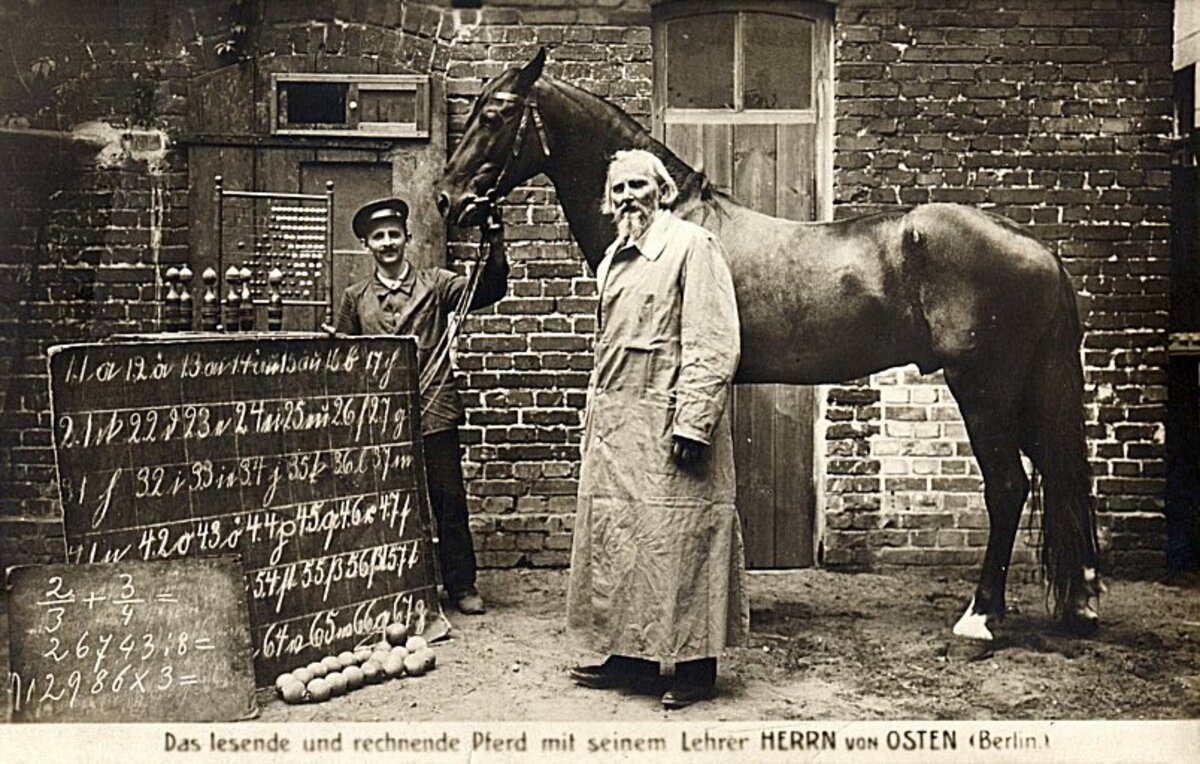 11 a 12 ä 13 au 14 äu 15 au 16 b 17 f
21 k 22 d 23 e 24 ei 25 eu 26 f 27 g
31 h 32 i 33 ie 34 j 35 k 36 l 37 m
41 n 42 o 43 ö 44 p 45 q 46 r 47 s
54 st 55 ß 56 57 t
64 65 w 66 67 z
2/3 + 3/4 =
26743 : 8 =
712986 x 3 =
Das lesende und rechnende Pferd mit seinem Lehrer HERRN von OSTEN (Berlin.)